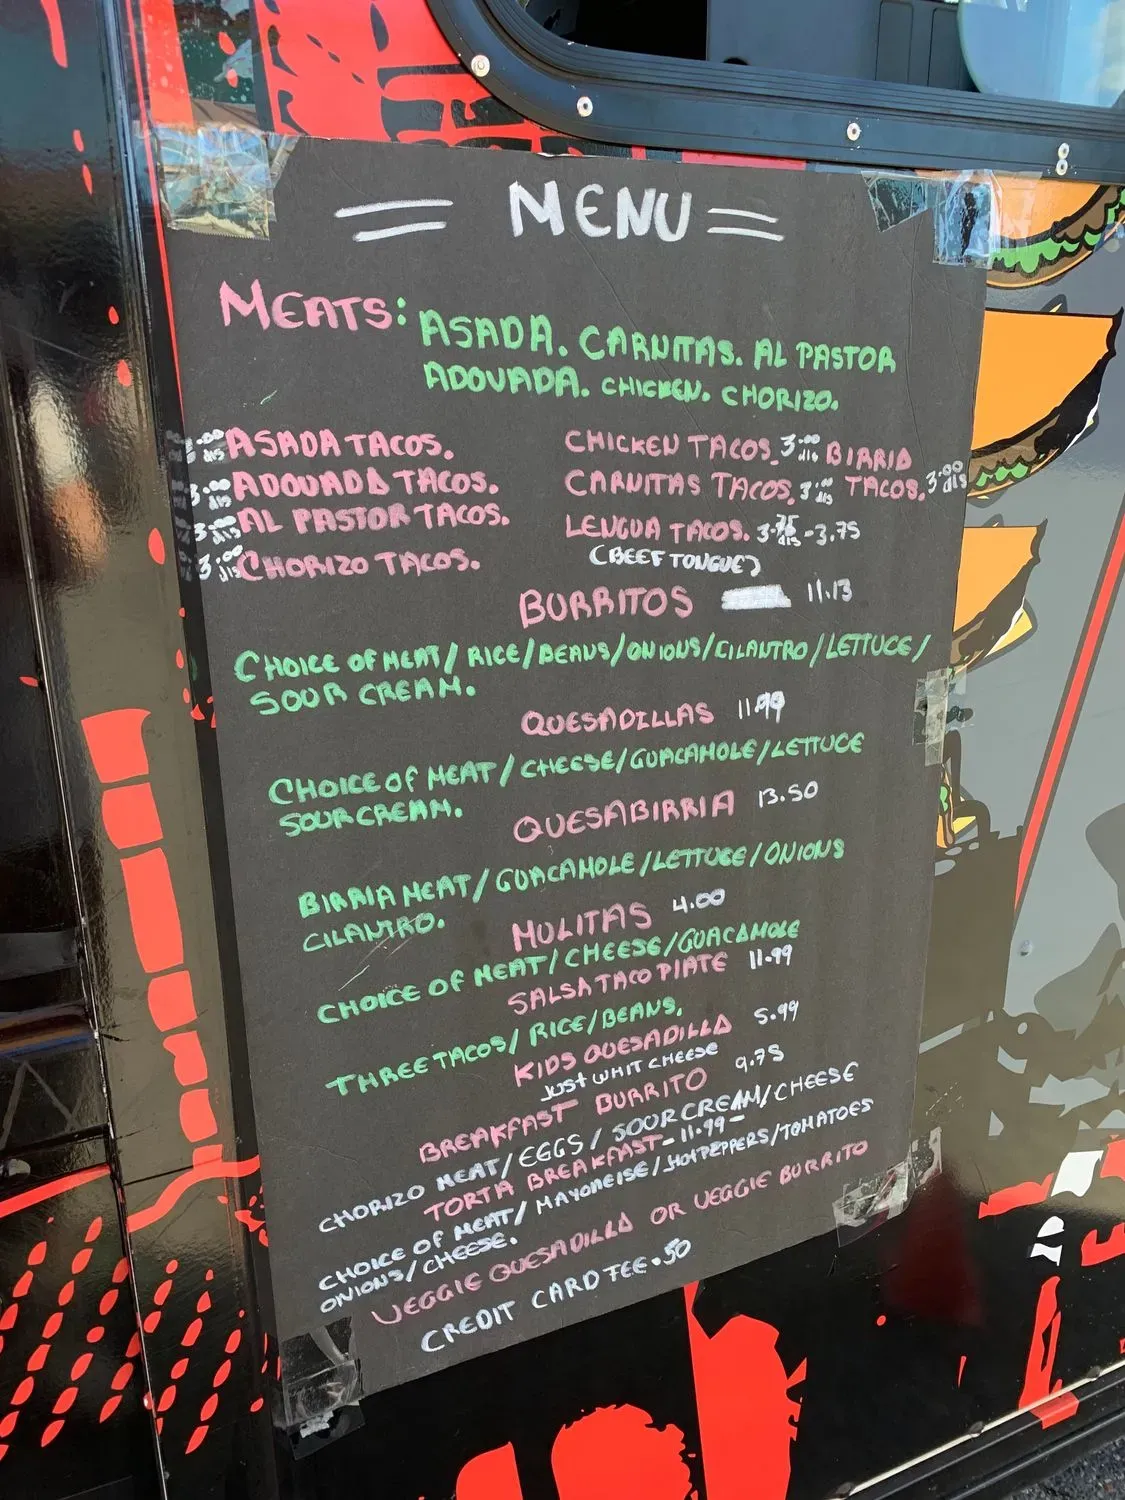 MENU
MEATS: ASADA. CARNITAS. AL PASTOR
ADOVADA. CHICKEN. CHORIZO.
3.00 ASADA TACOS.
3.00 ADOVADA TACOS.
3.00 AL PASTOR TACOS.
3.00 CHORIZO TACOS.
CHICKEN TACOS. 3.00 BIRRIA
CARNITAS TACOS. 3.00 TACOS. 3.00
LENGUA TACOS. 3.75 - 3.75
(BEEF TONGUE)
BURRITOS 11.13
CHOICE OF MEAT/ RICE/BEANS/ONIONS/CILANTRO/LETTUCE/
SOUR CREAM.
QUESADILLAS 11.99
CHOICE OF MEAT/CHEESE/GUACAMOLE/LETTUCE
SOUR CREAM.
QUESABIRRIA 13.50
BIRRIA MEAT/GUACAMOLE/LETTUCE/ONIONS
CILANTRO.
MULITAS 4.00
CHOICE OF MEAT/CHEESE/GUACAMOLE
SALSA TACO PLATE 11.99
THREE TACOS/ RICE/BEANS.
KIDS QUESADILLA 5.99
JUST WHIT CHEESE
BREAKFAST BURRITO 9.75
CHORIZO MEAT/EGGS/SOUR CREAM/CHEESE
TORTA BREAKFAST - 11.99 -
CHOICE OF MEAT/MAYONEISE/HOTPEPPERS/TOMATOES
ONIONS/CHEESE.
VEGGIE QUESADILLA OR VEGGIE BURRITO
CREDIT CARD FEE .50